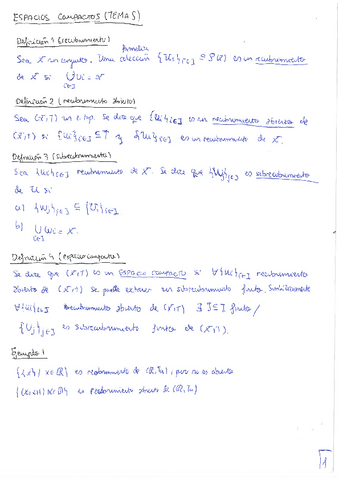 ESPACIOS COMPACTOS (TEMA 5)
Definición 1 (recubrimiento)
familia
Sea X un conjunto. Una colección {Ui}i∈I ⊆ P(X) es un recubrimiento
de X si ⋃ Ui = X
i∈I
Definición 2 (recubrimiento abierto)
Sea (X,T) un e.top. Se dice que {Ui}i∈I es un recubrimiento abierto de
(X,T) si {Ui}i∈I ⊆ T y {Ui}i∈I es un recubrimiento de X.
Definición 3 (subrecubrimiento)
Sea {Ui}i∈I recubrimiento de X. Se dice que {Wj}j∈J es subrecubrimiento
de U si
a) {Wj}j∈J ⊆ {Ui}i∈I
b) ⋃ Wi = X.
i∈I
Definición 4 (espacio compacto)
Se dice que (X,T) es un ESPACIO COMPACTO si ∀{Ui}i∈I recubrimiento
abierto de (X,T) se puede extraer un subrecubrimiento finito.
∀{Ui}i∈I recubrimiento abierto de (X,T) ∃ J⊆I finito/
{Uj}j∈J es subrecubrimiento finito de (X,T).
Ejemplo 1
{{x} | x∈ℝ} es recubrimiento de (ℝ,Tu), pero no es abierto
es recubrimiento abierto de (ℝ,Tu)
1